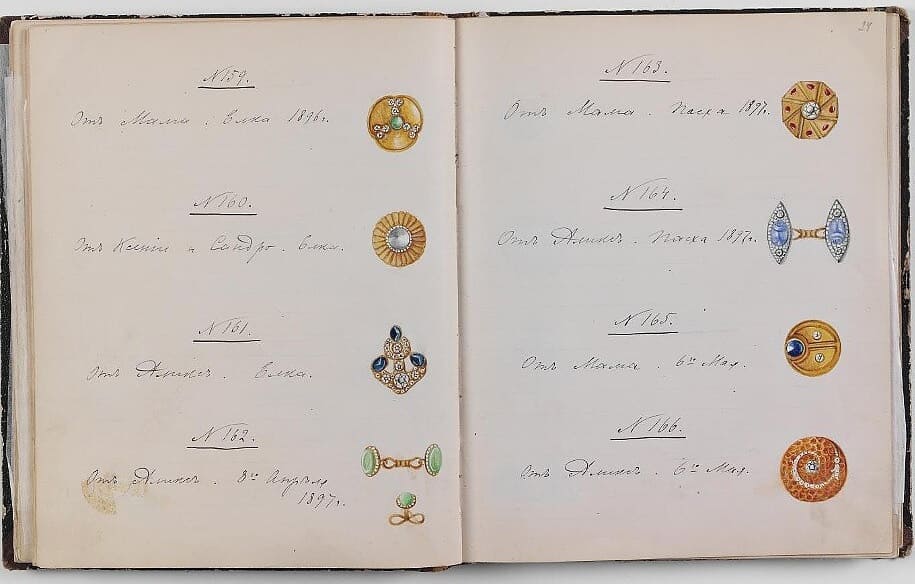 N159.
Отъ Мама. Елка 1896г.
N160.
Отъ Ксеніи и Сандро. Елка.
N161.
Отъ Аликсъ. Елка.
N162.
Отъ Аликсъ. 8го Апрѣля
1897г.
24
N163.
Отъ Мама. Пасха 1897г.
N164.
Отъ Аликсъ. Пасха 1897г.
N165.
Отъ Мама. 6го Мая.
N166.
Отъ Аликсъ. 6го Мая.